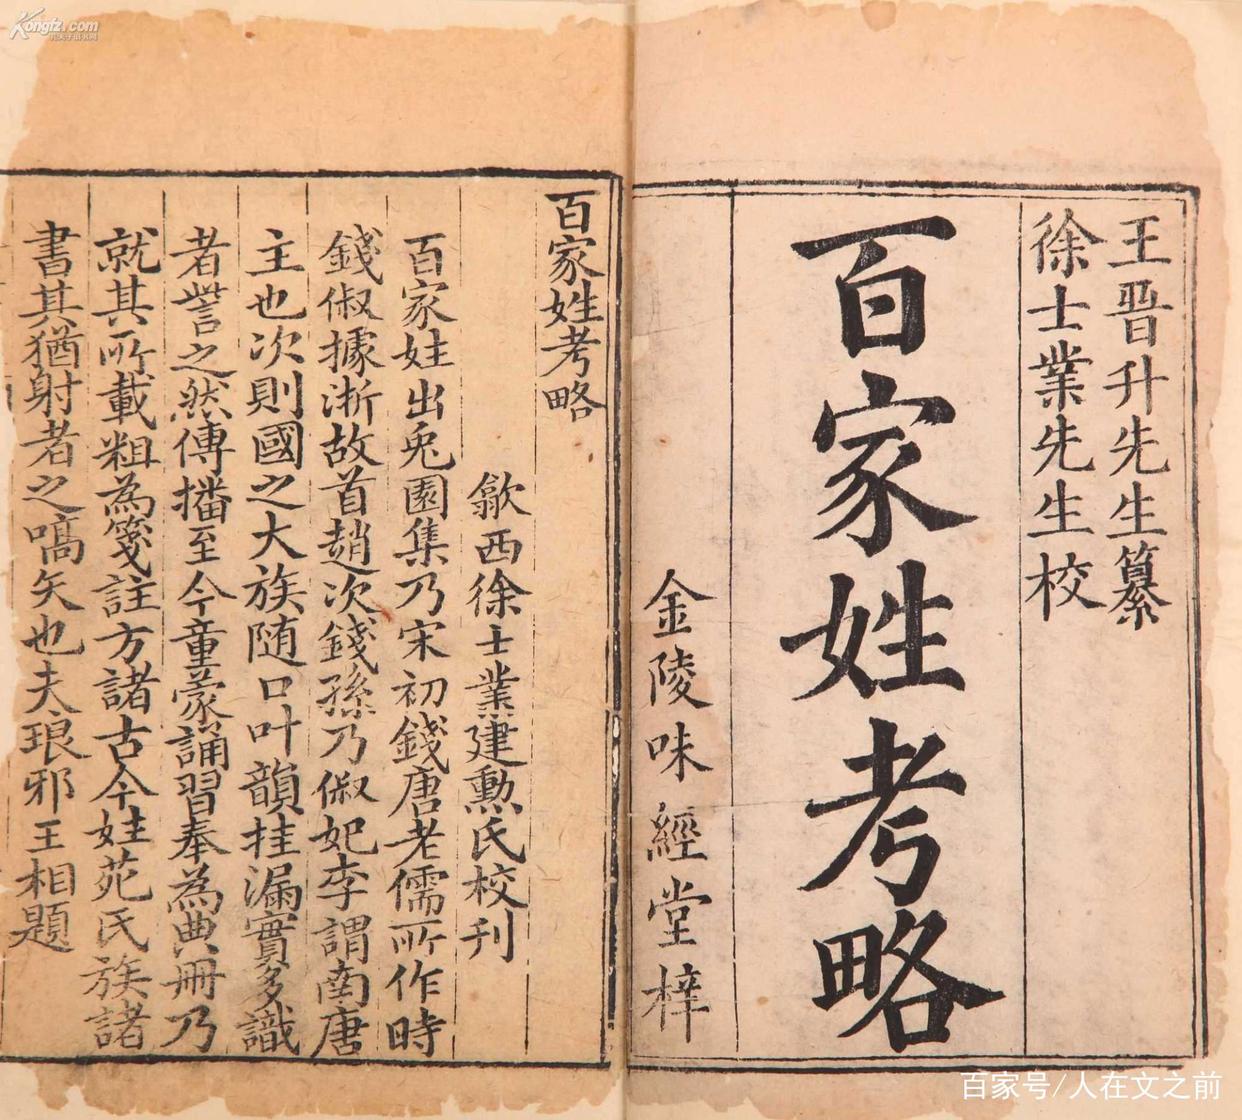 王晋升先生纂
徐士業先生校
百家姓考略
金陵味經堂梓
百家姓考略
歙西徐士業建勲氏校刊
百家姓出兎園集乃宋初錢唐老儒所作時
錢俶據浙故首趙次錢孫乃俶妃李謂南唐
主也次則國之大族随口叶韻挂漏實多識
者訾之然傳播至今童蒙誦習奉為典冊乃
就其所載粗為箋註方諸古今姓苑氏族諸
書其猶射者之嚆矢也夫琅邪王相題
Kongfz.com
孔夫子旧书网
百家号/人在文之前